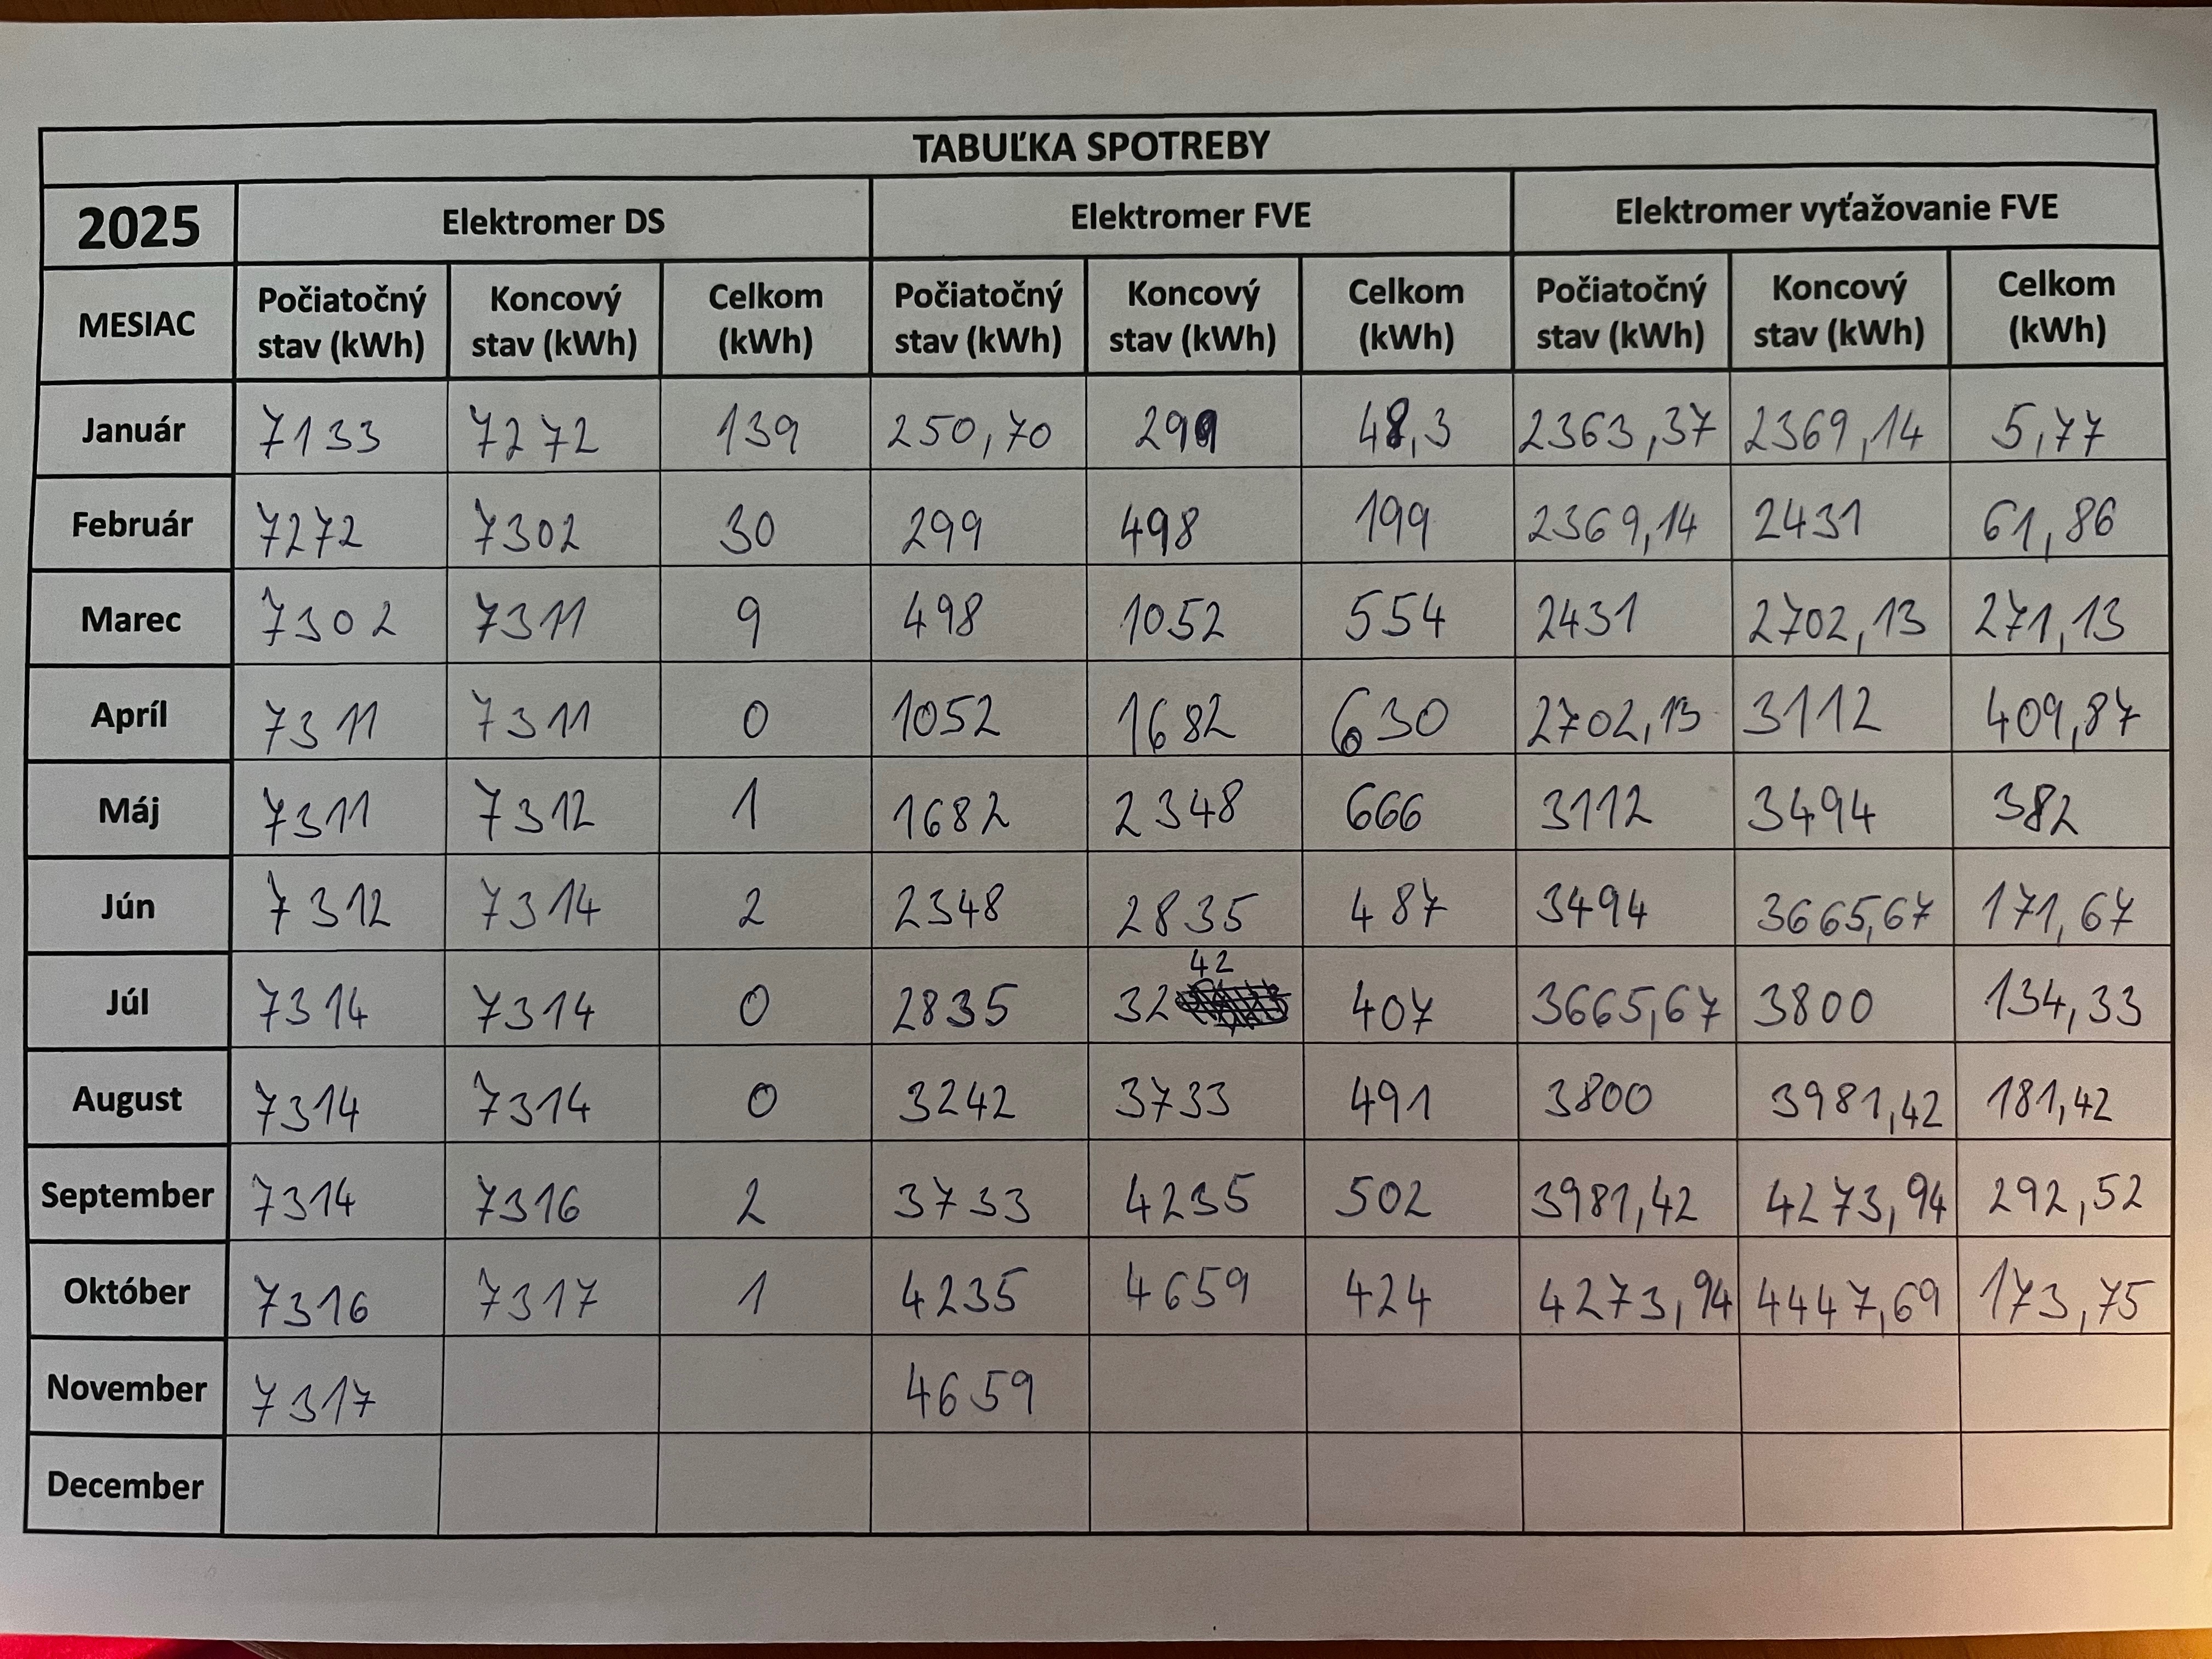 TABUĽKA SPOTREBY
2025 Elektromer DS Elektromer FVE Elektromer vyťažovanie FVE
MESIAC Počiatočný stav (kWh) Koncový stav (kWh) Celkom (kWh) Počiatočný stav (kWh) Koncový stav (kWh) Celkom (kWh) Počiatočný stav (kWh) Koncový stav (kWh) Celkom (kWh)
Január 7133 7272 139 250,70 299 48,3 2363,37 2369,14 5,77
Február 7272 7302 30 299 498 199 2369,14 2431 61,86
Marec 7302 7311 9 498 1052 554 2431 2702,13 271,13
Apríl 7311 7311 0 1052 1682 630 2702,13 3112 409,87
Máj 7311 7312 1 1682 2348 666 3112 3494 382
Jún 7312 7314 2 2348 2835 487 3494 3665,67 171,67
Júl 7314 7314 0 2835 3242 407 3665,67 3800 134,33
August 7314 7314 0 3242 3733 491 3800 3981,42 181,42
September 7314 7316 2 3733 4235 502 3981,42 4273,94 292,52
Október 7316 7317 1 4235 4659 424 4273,94 4447,69 173,75
November 7317 4659
December